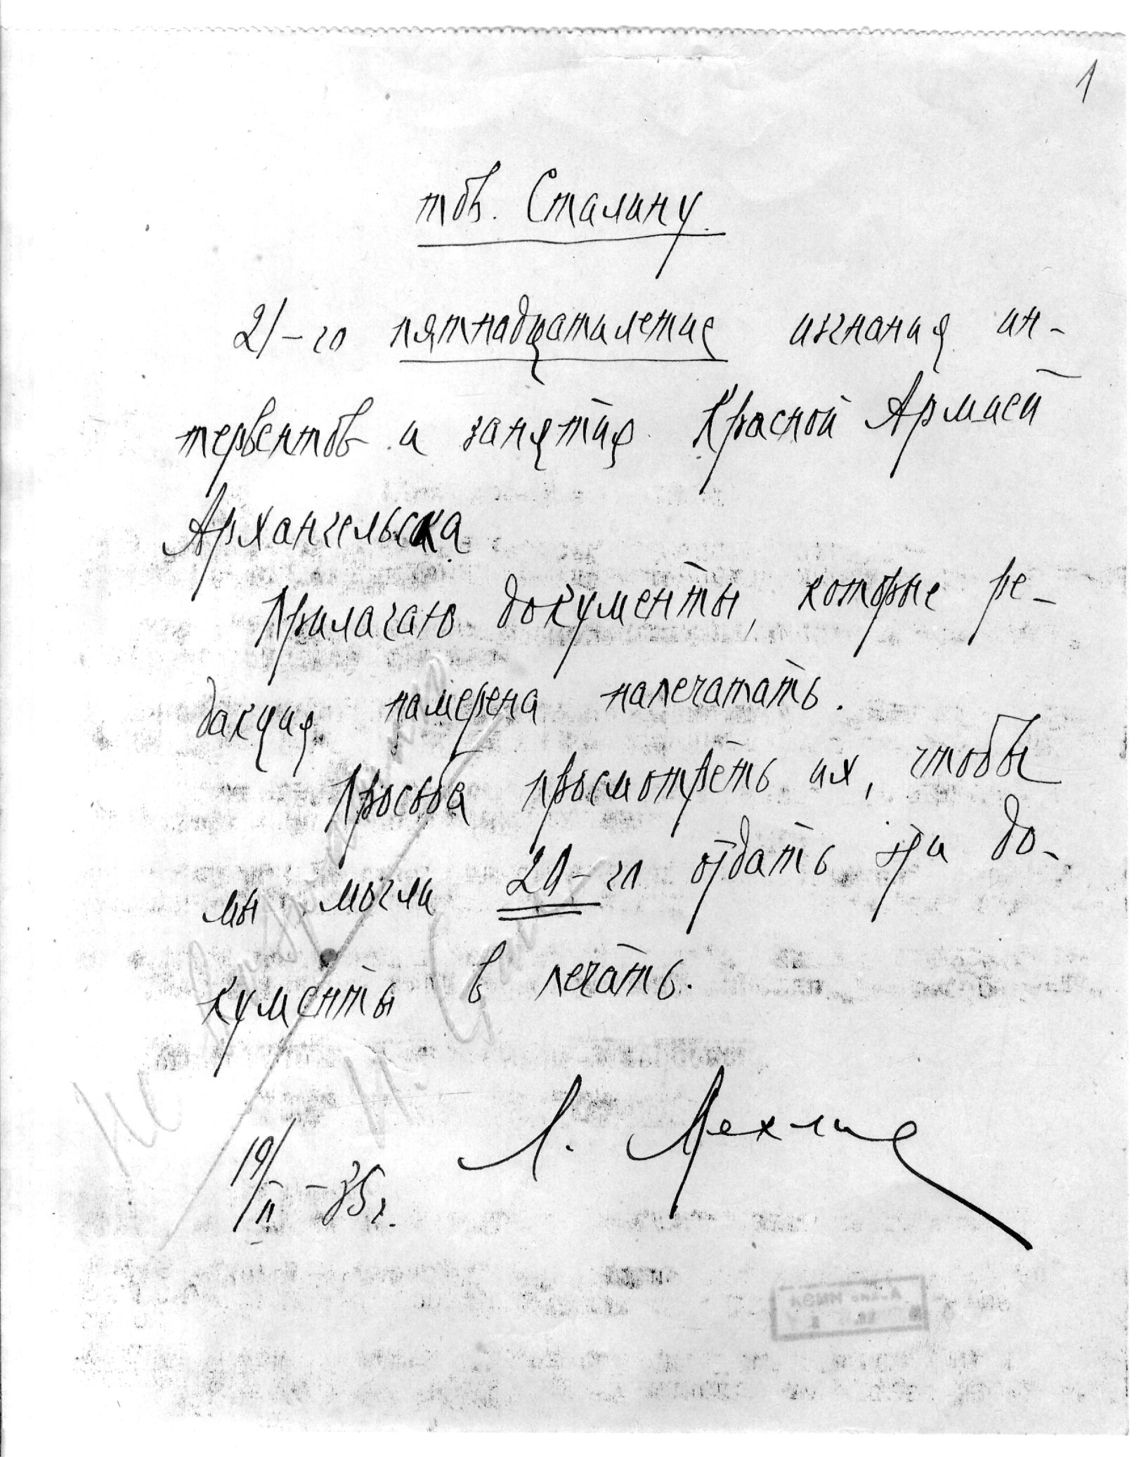 1
тов. Сталину.
21-го пятнадцатилетие изгнания ин-
тервентов и занятия Красной Армией
Архангельска.
Прилагаю документы, которые ре-
дакция намерена напечатать.
Просьба просмотреть их, чтобы
мы могли 20-го отдать эти до-
кументы в печать.
Л. Мехлис
19/II-35г.
Не возражаю
И. Сталин